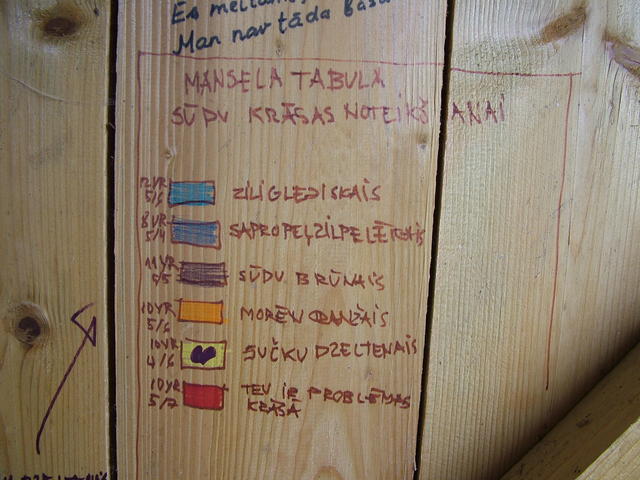 Es meklam
Man nav tāda
MANSELA TABULA
SŪDU KRĀSAS NOTEIKŠANAI
12YR 5/6 ZILIGLEDISKAIS
8YR 5/4
11YR 5/5 SŪDU BRŪNAIS
10YR 5/6 MORĒN ORANŽAIS
10YR 4/6 SUČKU DZELTENAIS
10YR 5/7 TEV IR PROBLĒMAS
KRĀSĀ